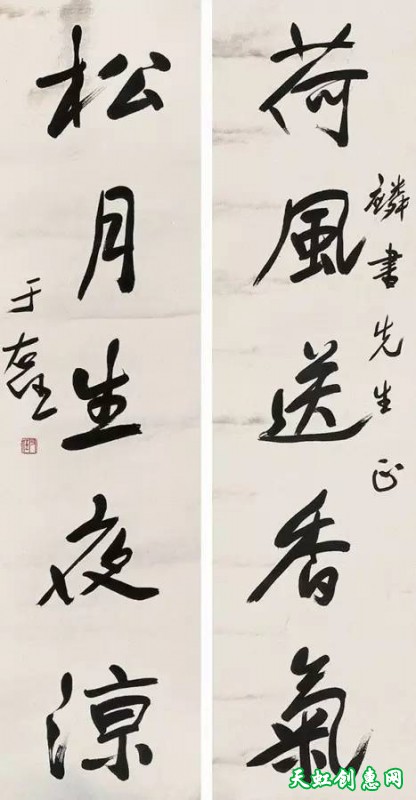 荷風送香氣
麟書先生正
松月生夜涼
于右任
天虹创惠网